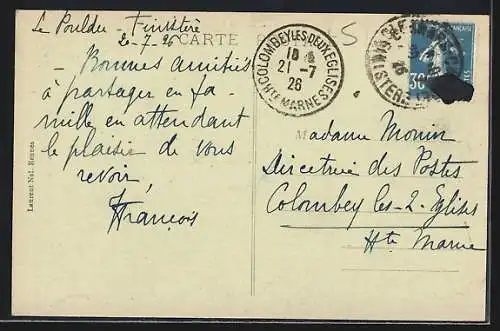 Le Pouldu - Finistère
2-7-26
CARTE
5
COLOMBEY-LES-DEUX-EGLISES
18
21 -7
26
HTE MARNE
26
FINISTERE
30
- Bonnes amitiés
à partager en fa-
mille en attendant
le plaisir de vous
revoir,
François
Madame Monin
Directrice des Postes
Colombey les-2-Eglises
Hte Marne
Laurent Nel, Rennes